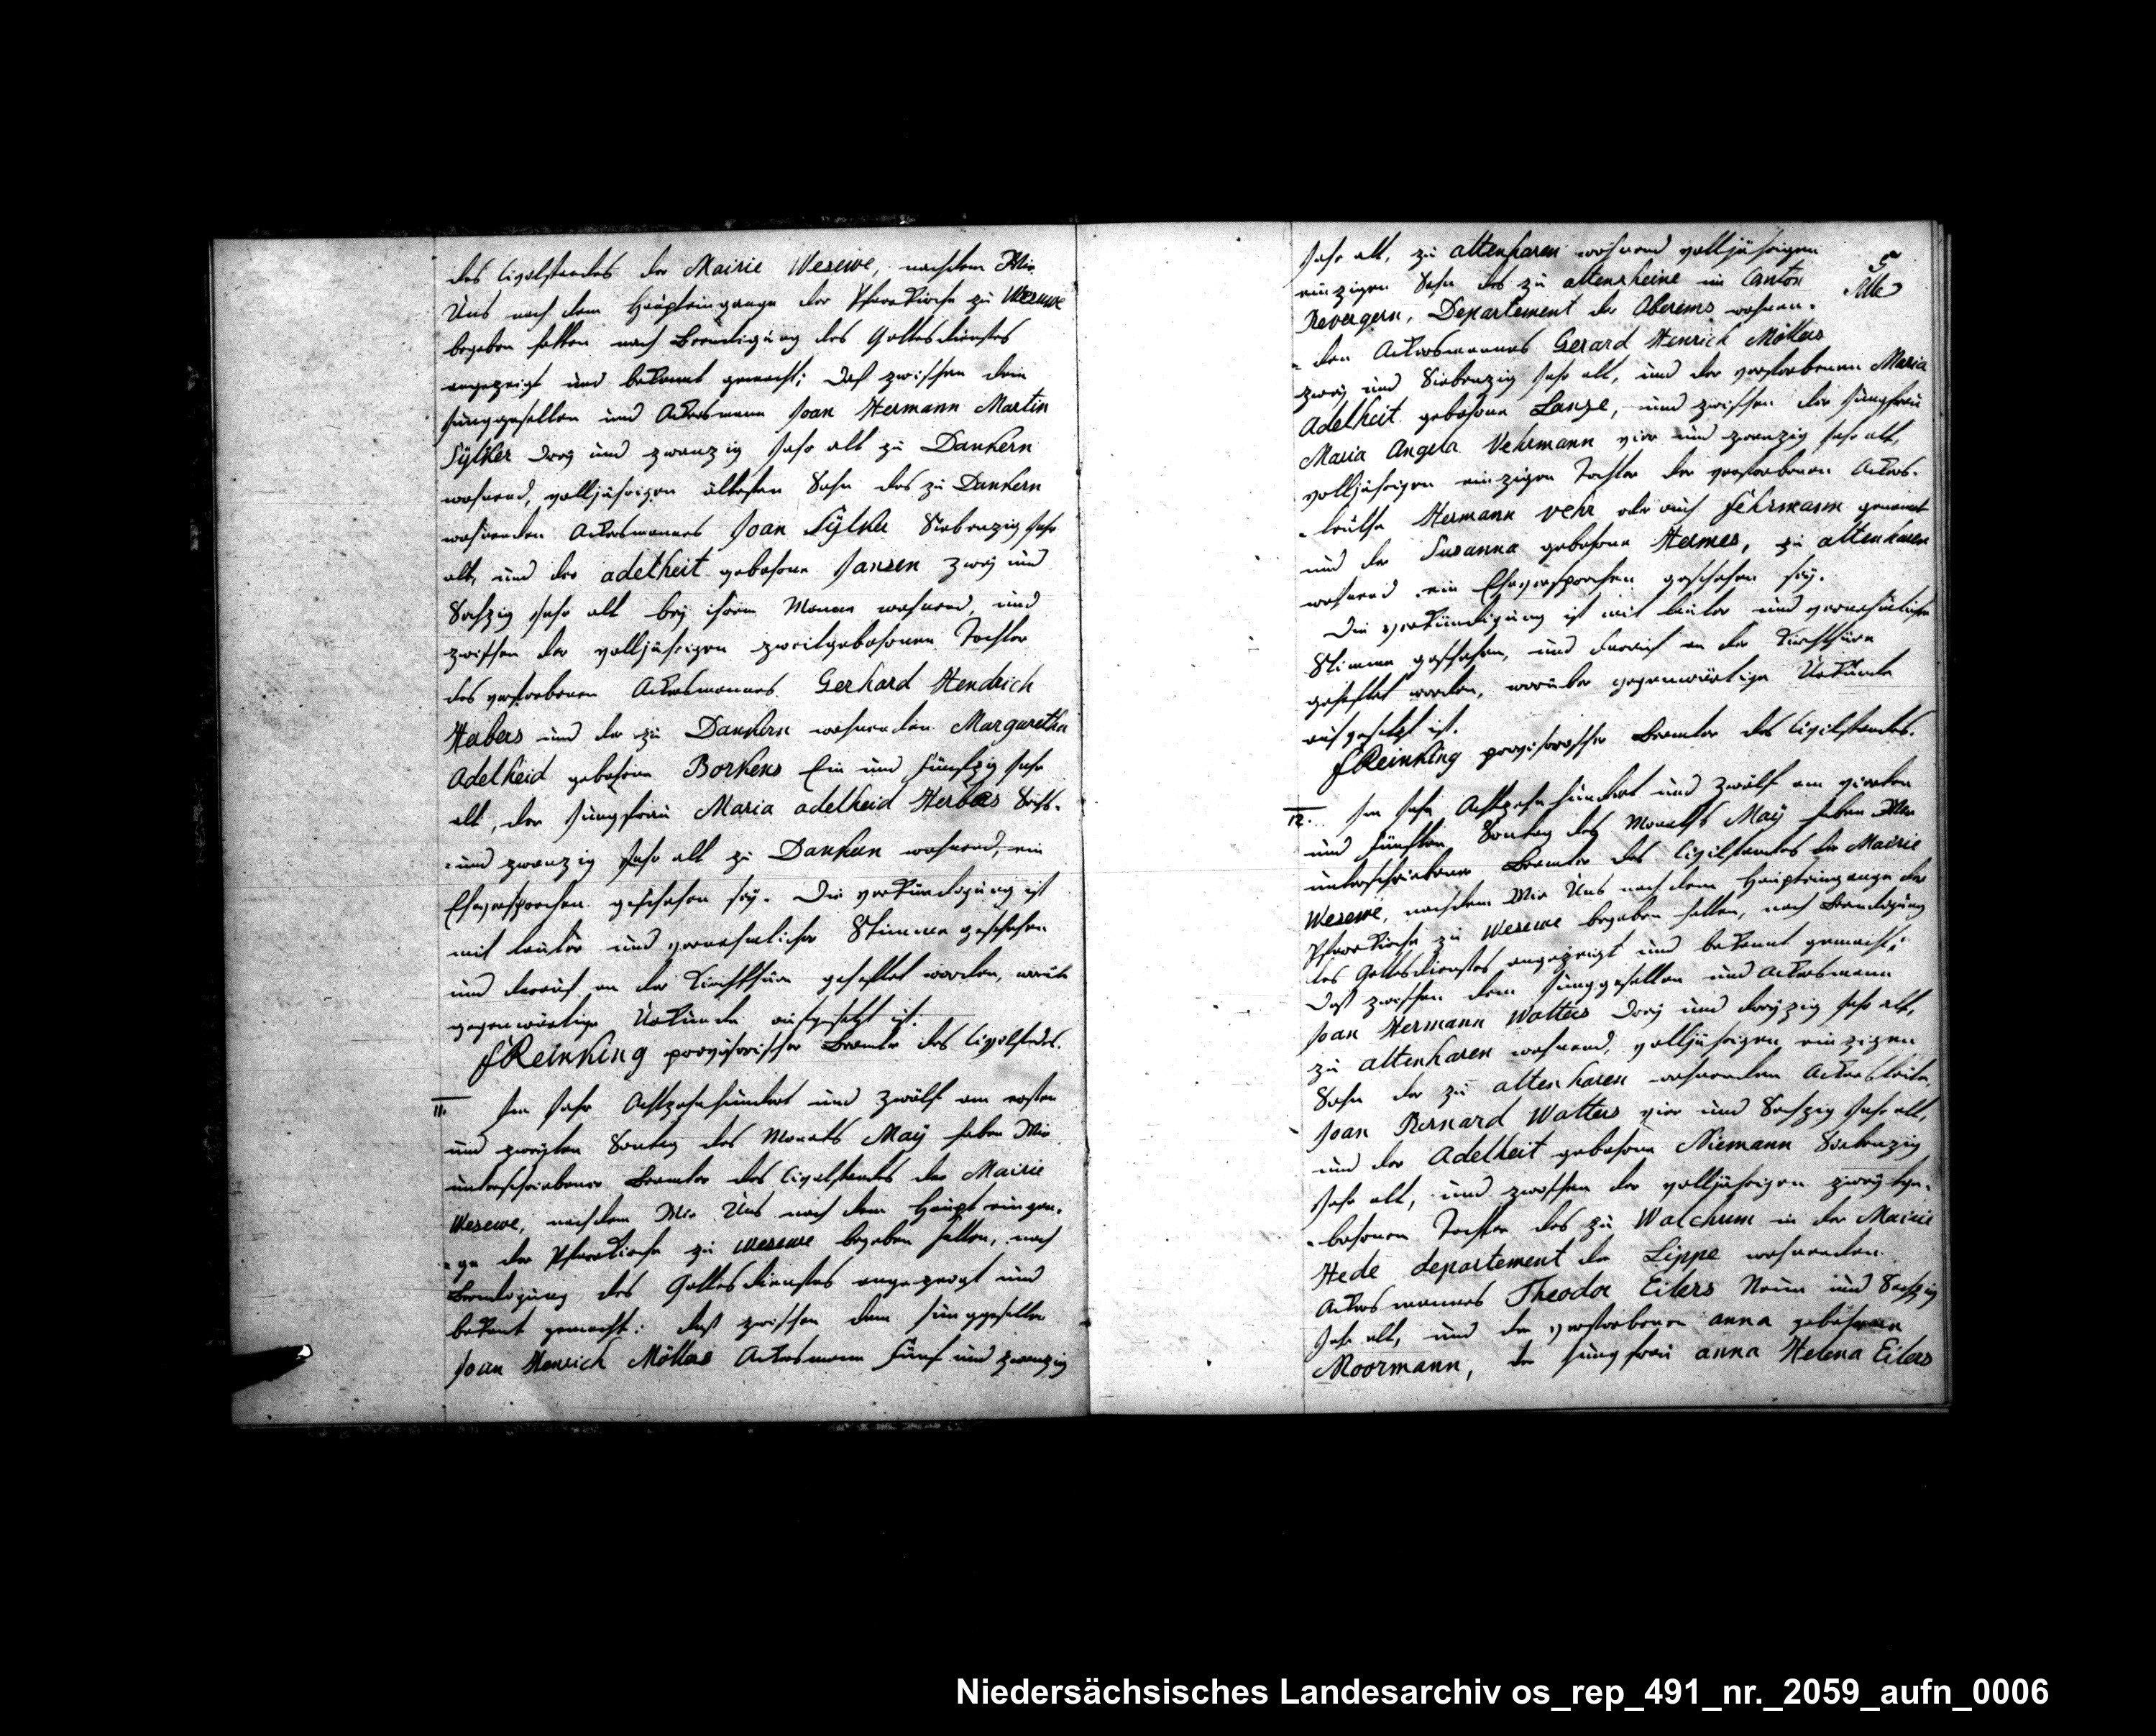 des Civilstandes der Mairie Wesewe, nachdem Wir
Uns nach dem Haupteingange der Pfarrkirche zu Wesuwe
begeben hatten nach Beendigung des Gottesdienstes
angezeigt und bekannt gemacht; Daß zwischen dem
Junggesellen und Ackersmann Joan Hermann Martin
Sylker drey und zwanzig Jahr alt zu Dankern
wohnend, volljährigen ältesten Sohn des zu Dankern
wohnenden Ackersmannes Joan Sylker Siebenzig Jahr
alt, und der adelheit gebohrne Jansen zwey und
Sechzig Jahr alt bey ihrem Manne wohnend, und
zwischen der volljährigen zweitgebohrnen Tochter
des verstorbenen Ackersmannes Gerhard Hendrich
Habers und der zu Dankern wohnenden Margaretha
Adelheid gebohrne Borkens Ein und fünfzig Jahr
alt, der Jungfrau Maria adelheid Herbers Sechs-
-und zwanzig Jahr alt zu Dankern wohnend, ein
Eheversprechen geschehen sey. Die Verkündigung ist
mit lauter und vernehmlicher Stimme geschehen
und darauf an der Kirchthüre geheftet worden,
gegenwärtige Urkunde aufgesetzt ist.
FReinking provisorischer Beamte des Civilstdes.
11. Im Jahr Achtzehnhundert und zwölf am ersten
und zweyten Sontag des Monats May haben Wir
unterschriebener Beamter des Civilstandes der Mairie
Wesewe, nachdem Wir Uns nach dem Haupt eingan-
-ge der Pfarrkirche zu Wesewe begeben hatten, nach
Beendigung des Gottesdienstes angezeigt und
bekant gemacht: daß zwischen dem Junggesellen
Joan Henrich Möllers Ackersmann Fünf und zwanzig
5
Jahr alt, zu altenharen wohnend volljährigen
einzigen Sohn des zu altenrheine im Canton
Revergern, Departement der Oberems wohnen-
-den Ackersmannes Gerard Henrich Möllers
zwey und Siebenzig Jahr alt, und der verstorbenen Maria
Adelheit gebohrne Lanze, und zwischen der Jungfrau
Maria Angela Vehrmann vier und zwanzig Jahr alt,
volljährigen einzigen Tochter der verstorbenen Ackers-
-leuthe Hermann Vehr oder auch Fehrmann genannt
und der Susanna gebohrne Hermes, zu altenharen
wohnend ein Eheversprechen geschehen sey.
Die Verkündigung ist mit lauter und vernehmlicher
Stimme geschehen, und darauf an der Kirchthüre
geheftet worden, worüber gegenwärtige Urkunde
aufgesetzt ist.
FReinking provisorischer Beamter des Civilstandes.
12. Im Jahr Achtzehnhundert und zwölf am vierten
und fünften Sontag des Monats May haben Wir
unterschriebener Beamter des Civilstandes der Mairie
Wesewe, nachdem Wir Uns nach dem Haupteingange der
Pfarrkirche zu Wesewe begeben hatten, nach Beendigung
des Gottesdienstes angezeigt und bekannt gemacht;
Daß zwischen dem Junggesellen und Ackersmann
Joan Hermann Wolters drey und dreyzig Jahr alt,
zu altenharen wohnend, volljährigen einzigen
Sohn der zu altenharen wohnenden Ackersleute,
Joan Bernard Wolters vier und Sechzig Jahr alt,
und der Adelheit gebohrne Niemann Siebenzig
Jahr alt, und zwischen der volljährigen zweytge-
-bohrnen Tochter des zu Walchum in der Mairie
Hede departement der Lippe wohnenden
Ackersmannes Theodor Eilers Neun und Sechzig
Jahr alt, und der verstorbenen anna gebohrnen
Moormann, der Jungfrau anna Helena Eilers
Niedersächsisches Landesarchiv os_rep_491_nr._2059_aufn_0006